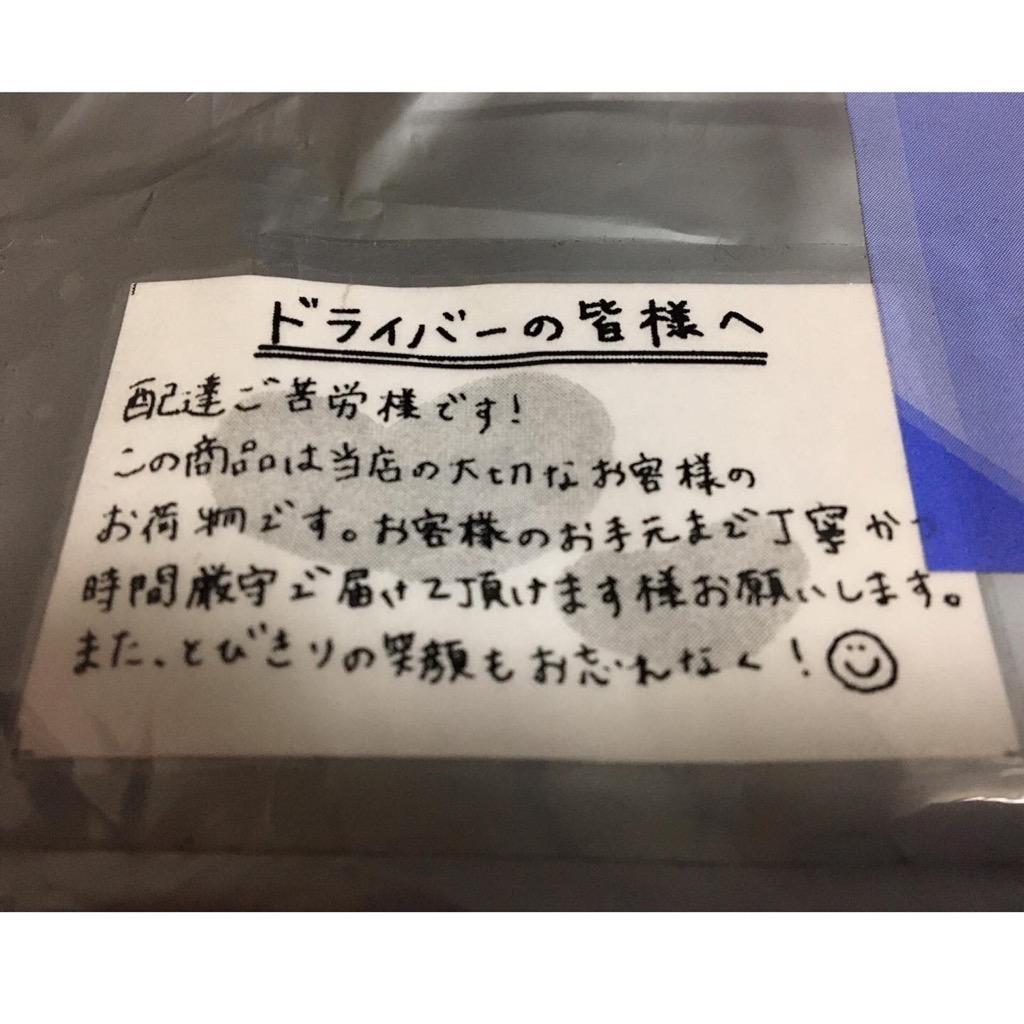 ドライバーの皆様へ
配達ご苦労様です!
この商品は当店の大切なお客様の
お荷物です。お客様のお手元まで丁寧かつ
時間厳守で届けて頂けます様お願いします。
また、とびきりの笑顔もお忘れなく!